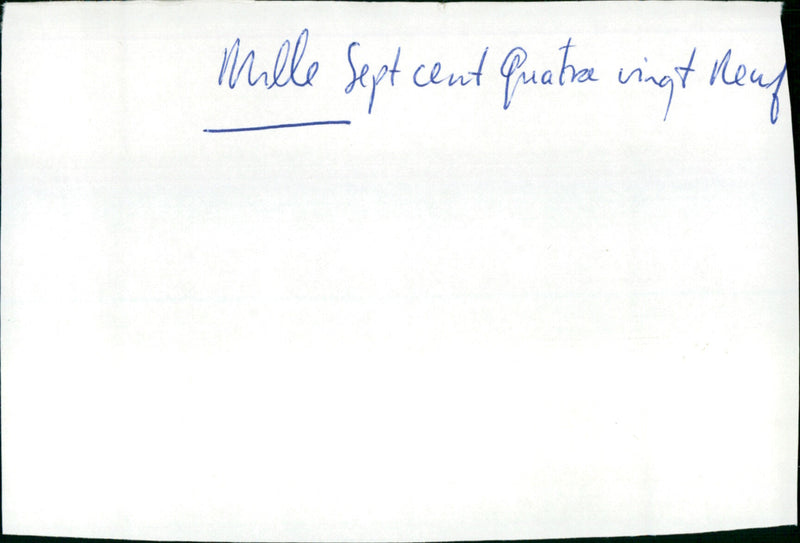 Mille Sept cent Quatre vingt Neuf